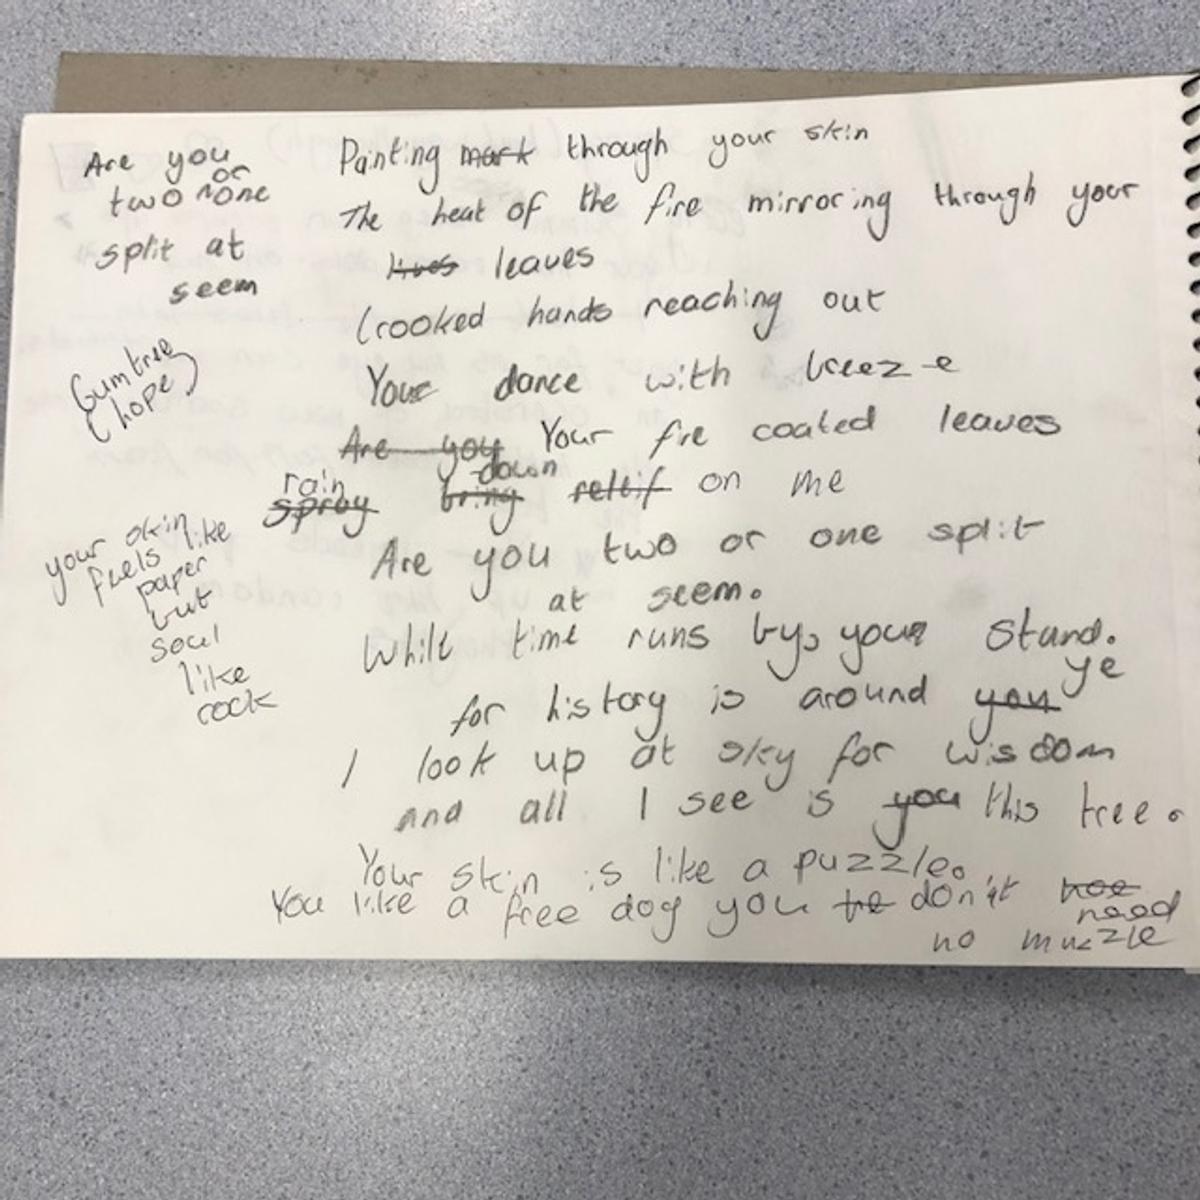 Are you
or
two none
split at
seem
Gumtree
(hope)
your skin
fuels like
paper
but
soul
like
rock
Painting mark through your skin
The heat of the fire mirroring through your
lives leaves
Crooked hands reaching out
Your dance with breeze
Are you Your fire coated leaves
rain down
spray bring releif on me
Are you two or one split
at seem.
While time runs by, your stand.
for history is around you ye
I look up at sky for wisdom
and all I see is you this tree.
Your skin is like a puzzle.
You like a free dog you don't need
no muzzle